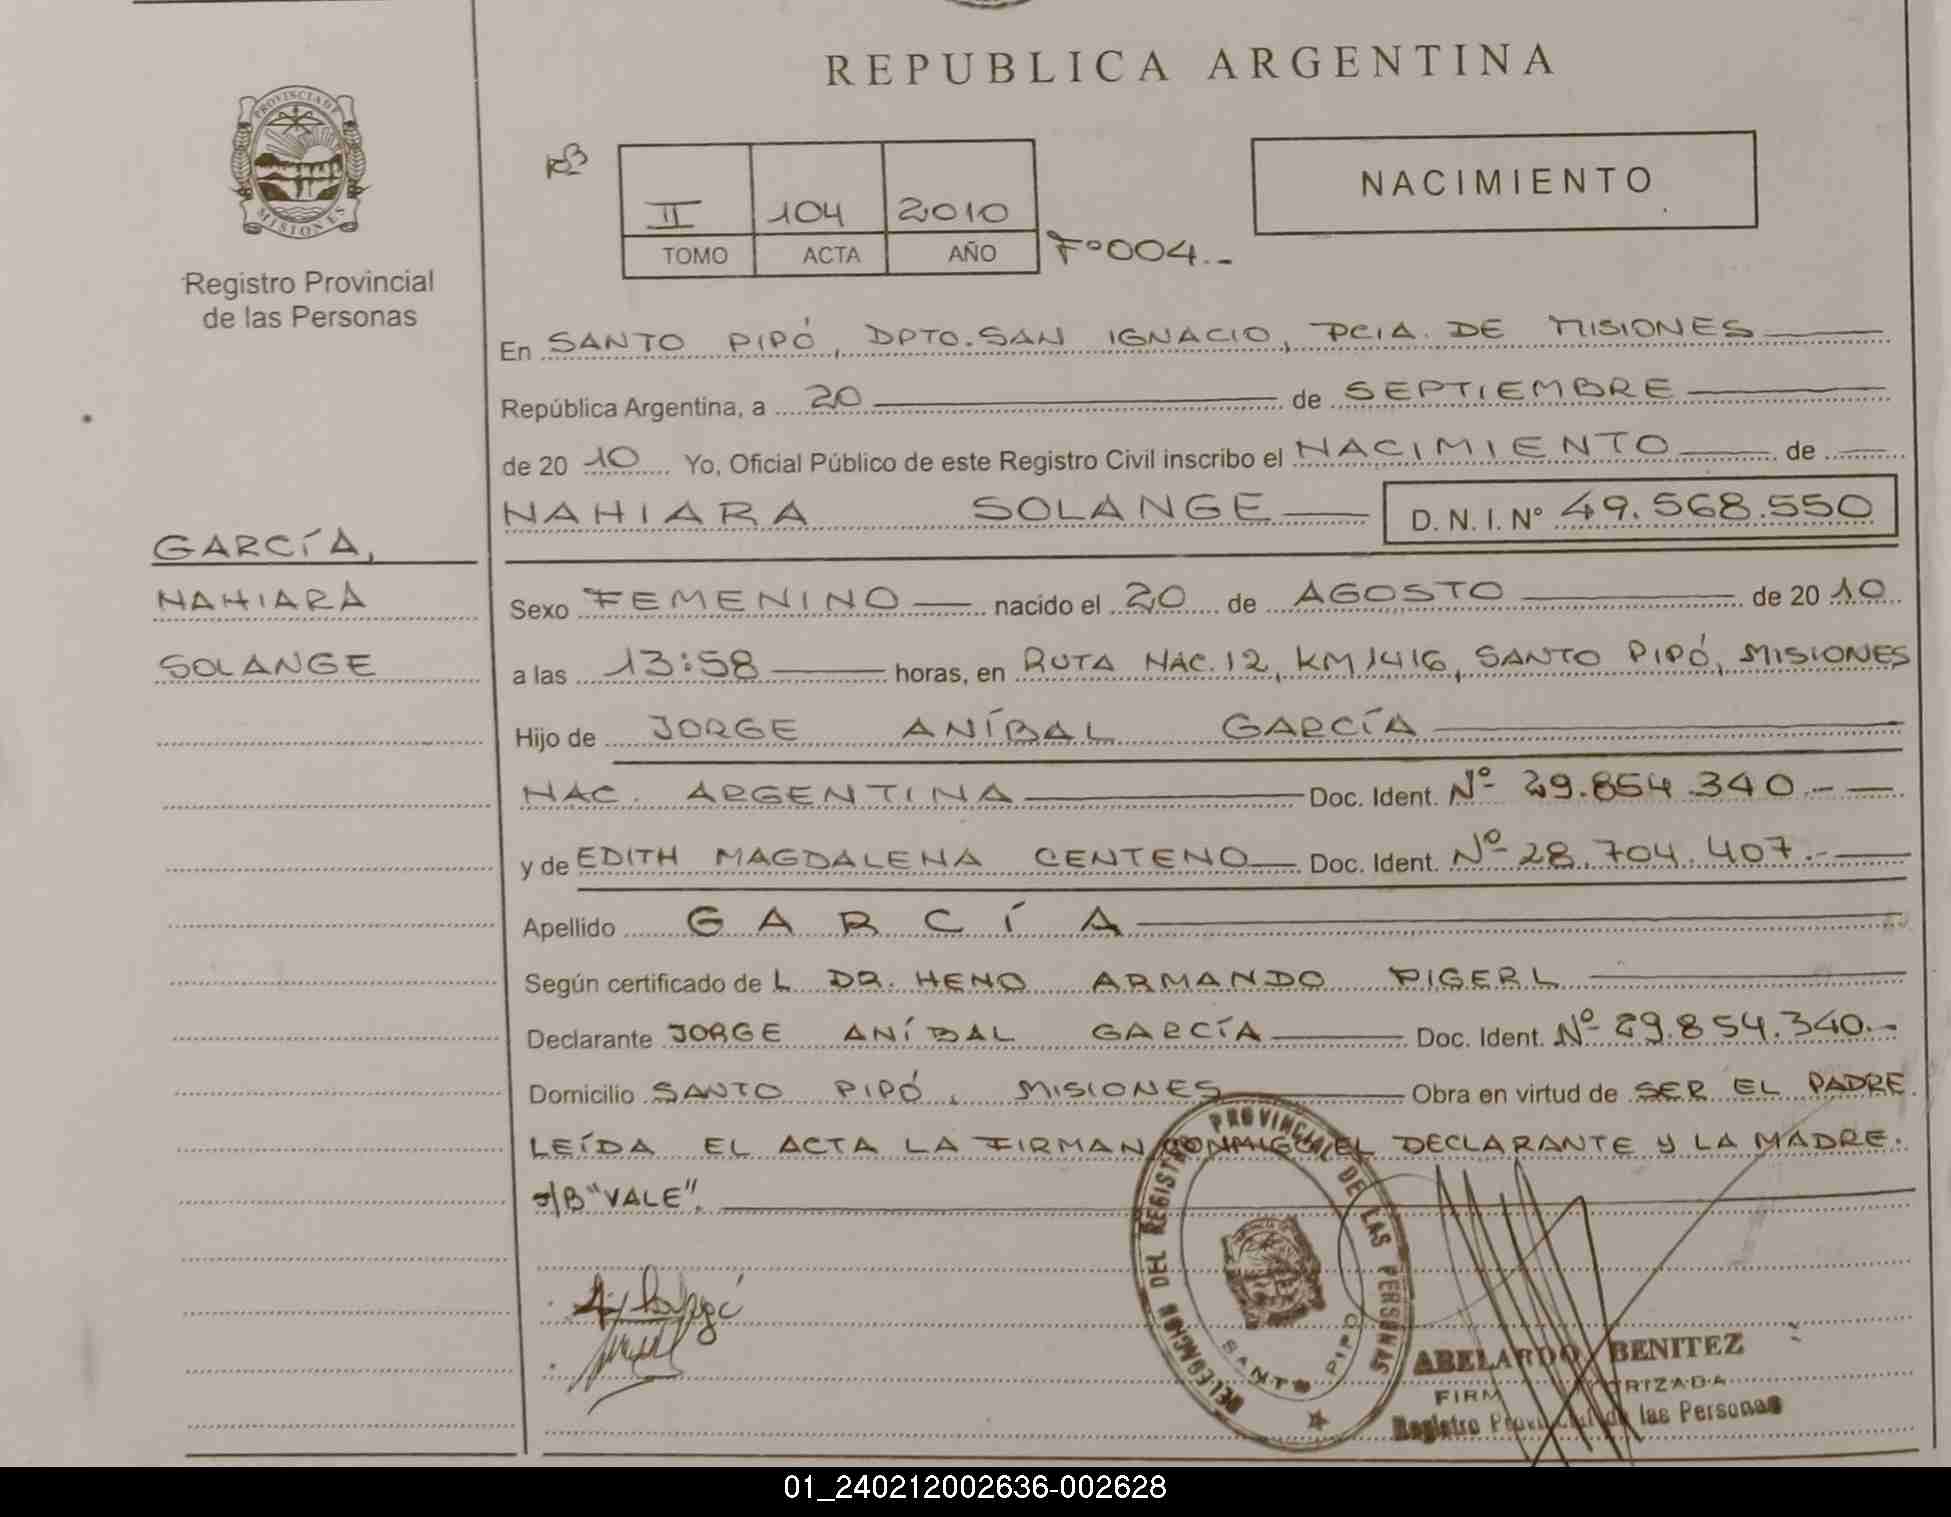 REPUBLICA ARGENTINA
PROVINCIA DE
MISIONES
Registro Provincial
de las Personas
II 104 2010
TOMO ACTA AÑO
Fº004.-
NACIMIENTO
En SANTO PIPÓ, DPTO. SAN IGNACIO, PCIA. DE MISIONES
República Argentina, a 20 de SEPTIEMBRE
de 20 10 Yo, Oficial Público de este Registro Civil inscribo el NACIMIENTO de
NAHIARA SOLANGE D. N. I. Nº 49.568.550
GARCÍA,
NAHIARA
SOLANGE
Sexo FEMENINO nacido el 20 de AGOSTO de 20 10
a las 13:58 horas, en RUTA NAC. 12, KM 1416, SANTO PIPÓ, MISIONES
Hijo de JORGE ANÍBAL GARCÍA
NAC. ARGENTINA Doc. Ident. Nº 29.854.340.-
y de EDITH MAGDALENA CENTENO Doc. Ident. Nº 28.704.407.-
Apellido GARCÍA
Según certificado de L DR. HENO ARMANDO PIGERL
Declarante JORGE ANÍBAL GARCÍA Doc. Ident. Nº 29.854.340.-
Domicilio SANTO PIPÓ, MISIONES Obra en virtud de SER EL PADRE.
LEÍDA EL ACTA LA FIRMAN CONMIGO EL DECLARANTE Y LA MADRE.
s/B "VALE".
DELEGACION DEL REGISTRO PROVINCIAL DE LAS PERSONAS
SANTO PIPO
ABELARDO BENITEZ
FIRMA AUTORIZADA
Registro Provincial de las Personas
01_240212002636-002628